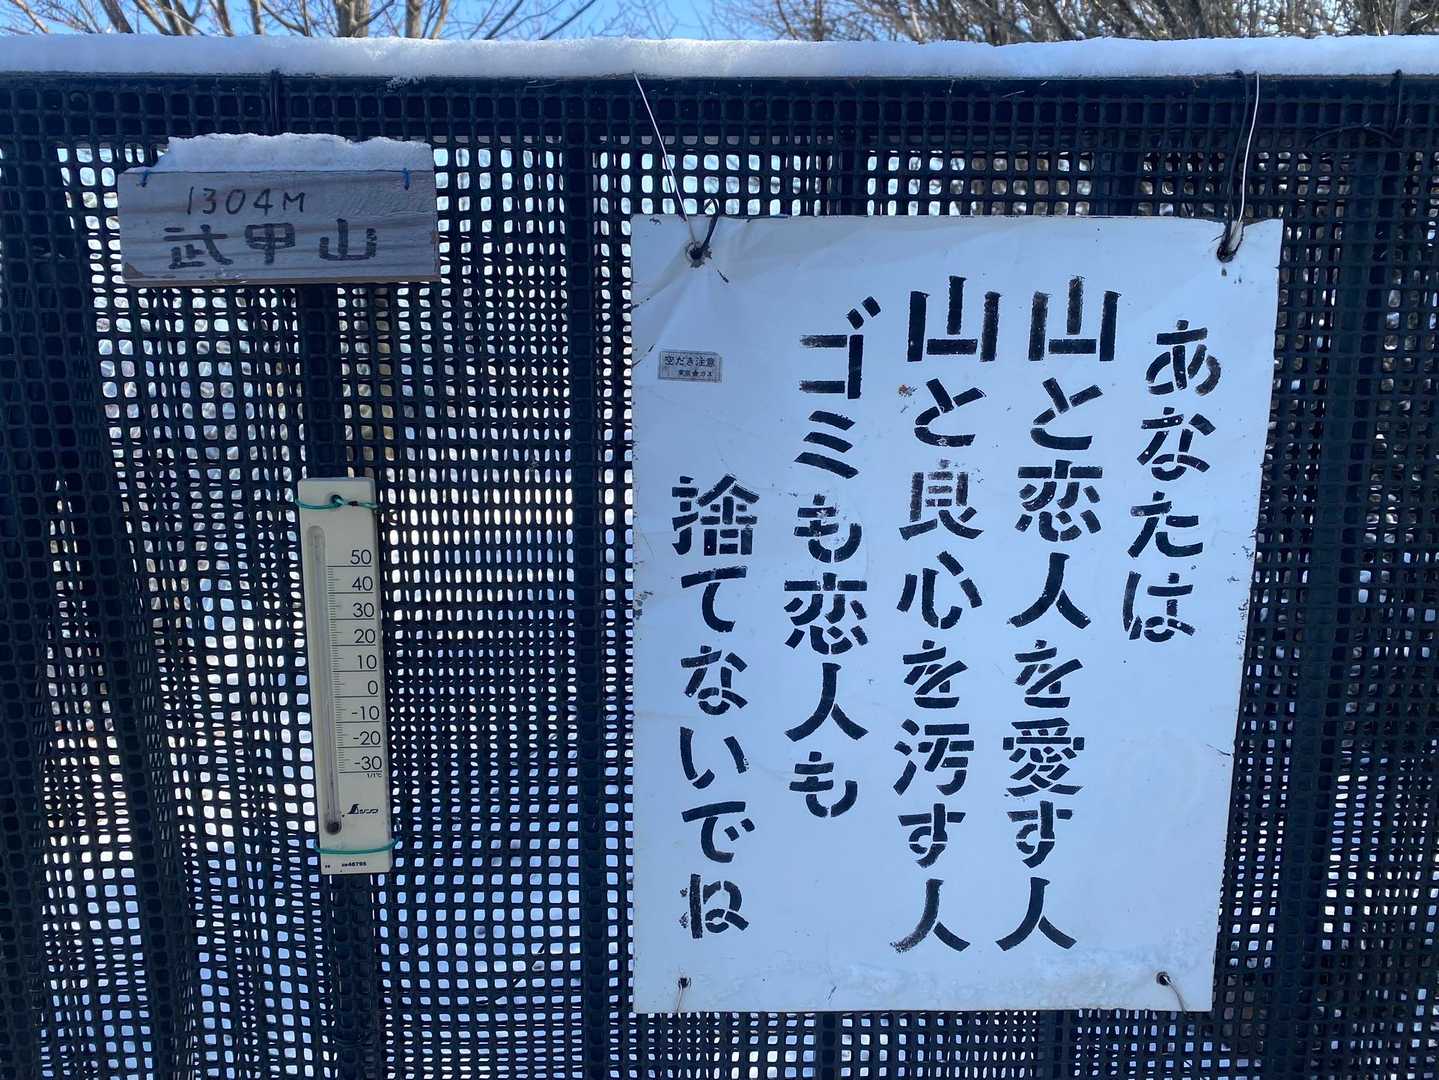 1304M
武甲山
あなたは
山と恋人を愛す人
山と良心を汚す人
ゴミも恋人も
捨てないでね
空だき注意
東京ガス
50
40
30
20
10
0
-10
-20
-30
1/1℃
シンワ